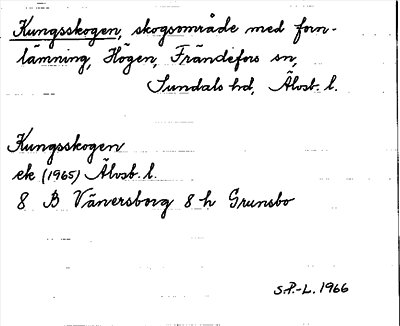 Kungsskogen, skogsområde med forn-
lämning, Högen, Frändefors sn,
Sundals hd, Älvsb. l.
Kungsskogen
ek (1965) Älvsb. l.
8 B Vänersborg 8 h Grunsbo
S.P.-L. 1966